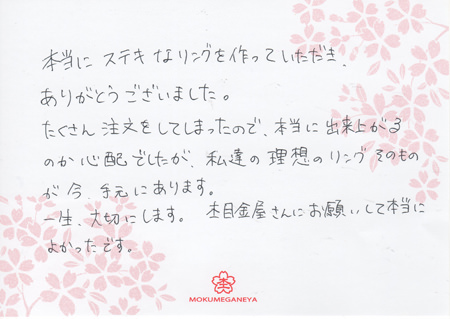 本当に ステキなリングを作っていただき、
ありがとうございました。
たくさん注文をしてしまったので、本当に出来上がる
のか心配でしたが、私達の理想のリングそのもの
が今、手元にあります。
一生、大切にします。 杢目金屋さんにお願いして本当に
よかったです。
杢
MOKUMEGANEYA